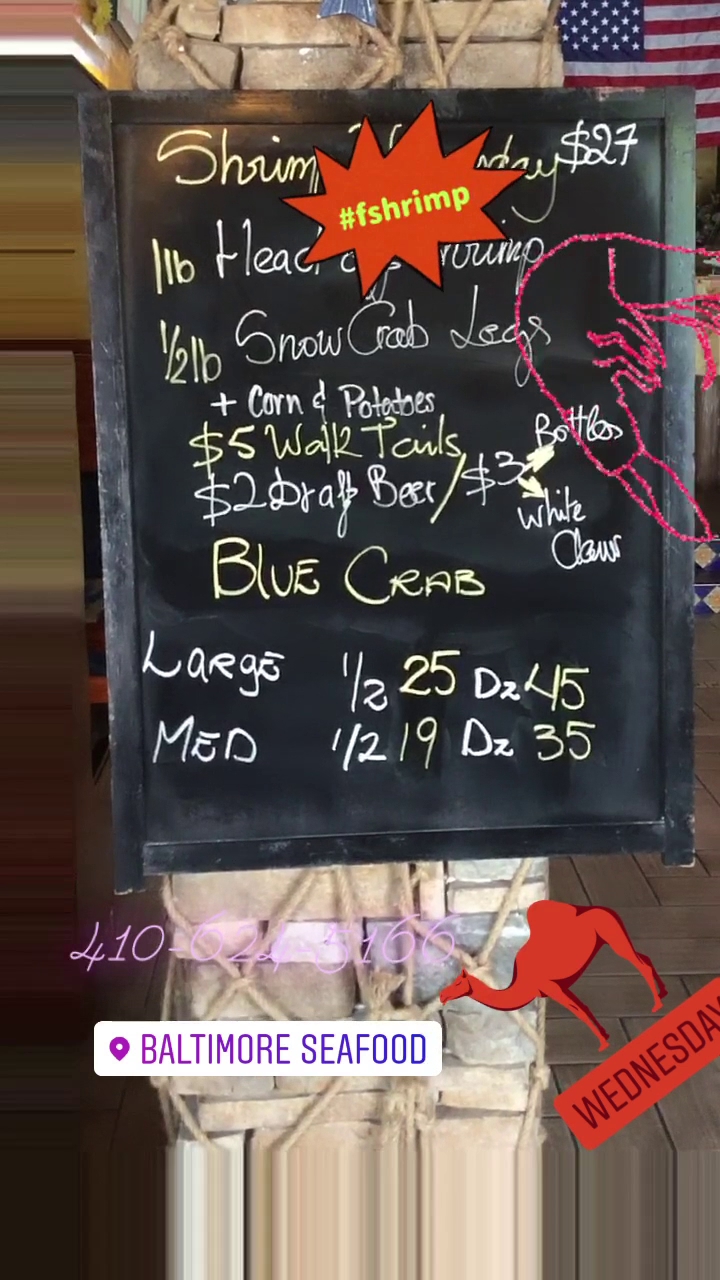 $27
#fshrimp
1lb
1/2lb Snow Crab Legs
+ Corn & Potatoes
$5 Walk Tails
$2 Draft Beer / $3 Bottles
White
Claw
BLUE CRAB
LARGE 1/2 25 Dz 45
MED 1/2 19 Dz 35
410-624-5166
BALTIMORE SEAFOOD
WEDNESDAY